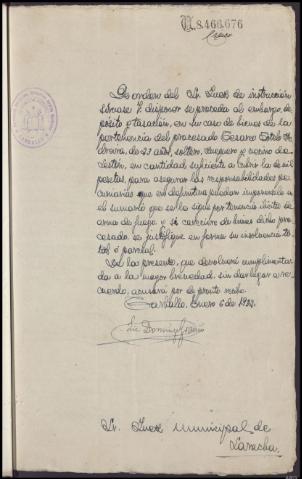 N.8.466.676
De orden del Sr. Juez de instrucción
sírvase V. disponer se proceda al embargo, de
pósito y tasación, en su caso de bienes de la
pertenencia del procesado Cesareo Sotelo
de 23 años, soltero, campesino y vecino de
en cantidad suficiente a cubrir la de mil
pesetas, para asegurar las responsabilidades pe
cuniarias que en definitiva puedan imponerle en
el sumario que se le sigue por tenencia ilícita de
arma de fuego y si careciere de bienes dicho pro
cesado se justifique en forma su insolvencia to
tal o parcial.
De la presente, que devolverá cumplimentada
da a la mayor brevedad, sin dar lugar a re
cuerdo, acusará por de pronto recibo.
Carballo, Enero 6 de 1937.
Luis Domínguez
Sr. Juez Municipal de
Laracha.